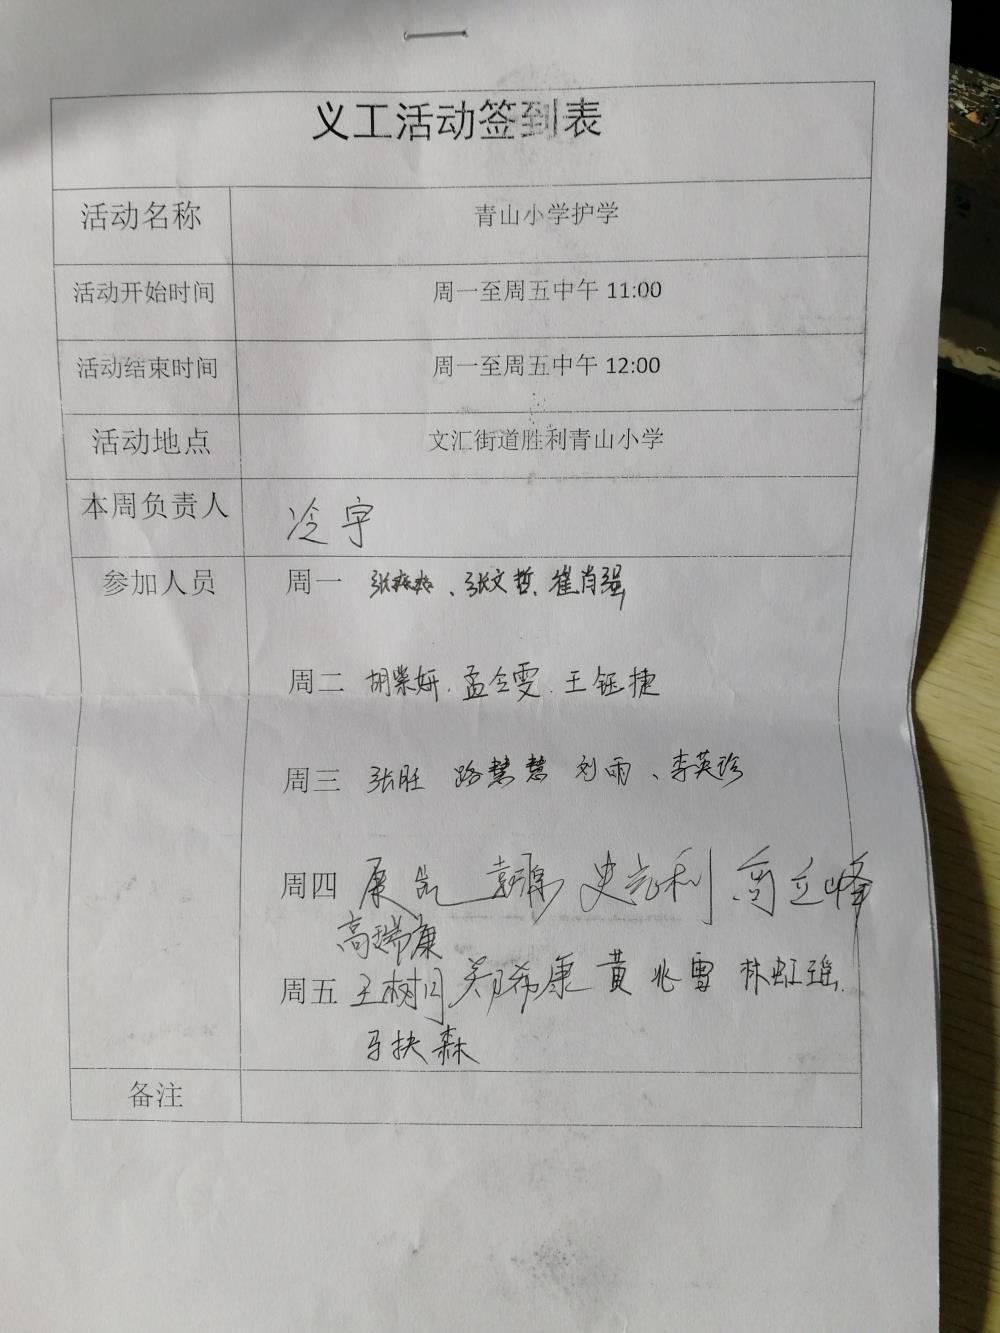 义工活动签到表
活动名称 青山小学护学
活动开始时间 周一至周五中午 11:00
活动结束时间 周一至周五中午 12:00
活动地点 文汇街道胜利青山小学
本周负责人 冷宇
参加人员 周一 张 、张文哲、崔肖强
周二 胡紫妍、孟令雯、王钰捷
周三 张旺 路慧慧 刘雨、李英珍
周四 史 利 周立峰
高瑞康
周五 王树 希康 黄兆雪 林虹瑶
马扶森
备注